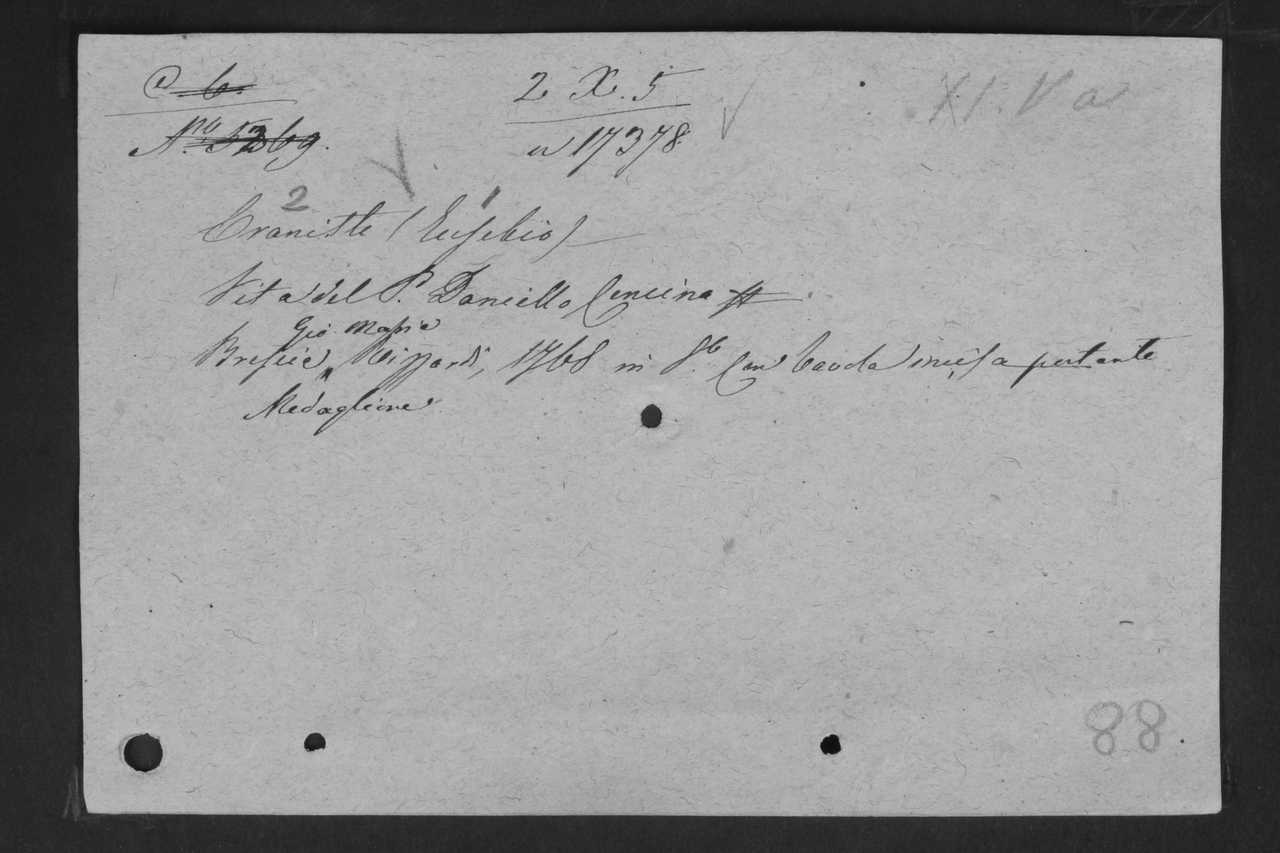 C 6.
2 X. 5
XI. V a
N.ro 53269.
n 17378
2 1
Eraniste (Eusebio)
Vita del P. Daniello Concina
Gio Maria
Brescia, Rizzardi, 1768 in 8.º Con tavola incisa portante
Medaglione
88